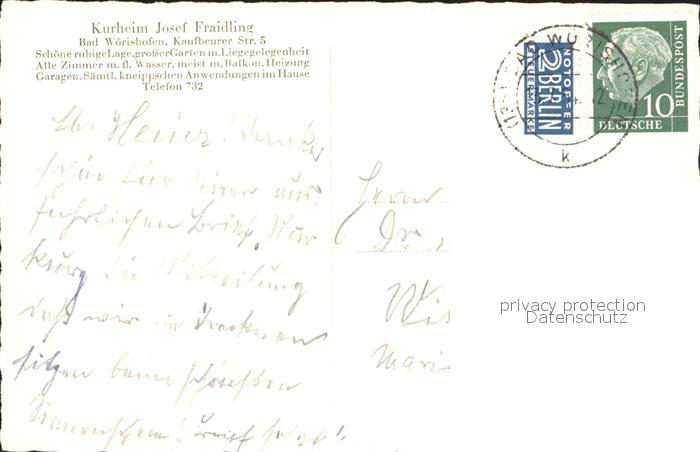 Kurheim Josef Fraidling
Bad Wörishofen, Kaufbeurer Str. 5
Schöne ruhige Lage, großer Garten m. Liegegelegenheit
Alle Zimmer m. fl. Wasser, meist m. Balkon, Heizung
Garagen. Sämtl. kneippschen Anwendungen im Hause
Telefon 732
Lb. Heinz! Danke
schön für Deinen aus-
führlichen Brief. Nur
kurz die Mitteilung
daß wir im Trockenen
sitzen beim schönsten
Sonnenschein! Brief folgt!
Herrn
Dr
Wi
Mari
NOTOPFER
2 BERLIN
STEUERMARKE
10
DEUTSCHE
BUNDESPOST
BAD WÖRISHOFEN
k
privacy protection
Datenschutz